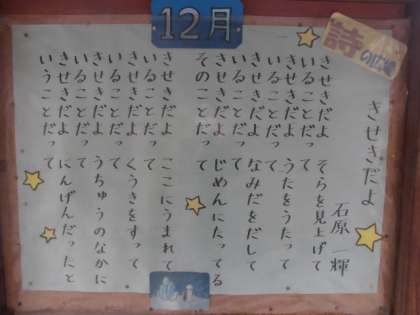 12月
詩の広場
きせきだよ
石原 一輝
きせきだよ そらを見上げて
いることだって
きせきだよ うたをうたって
いることだって
きせきだよ なみだをだして
いることだって
きせきだよ じめんにたってる
そのことだって
きせきだよ ここにうまれて
いることだって
きせきだよ くうきをすって
いることだって
きせきだよ うちゅうのなかに
いることだって
きせきだよ にんげんだったと
いうことだって